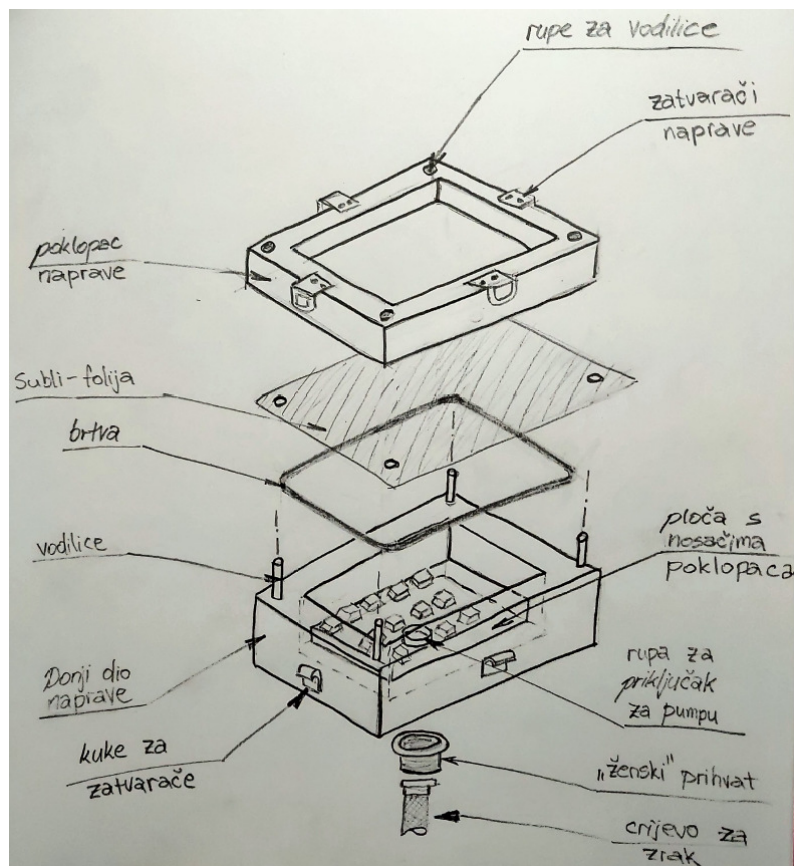 rupe za vodilice
zatvarači
naprave
poklopac
naprave
Subli-folija
brtva
vodilice
ploča s
nosačima
poklopaca
Donji dio
naprave
rupa za
priključak
za pumpu
kuke za
zatvarače
„ženski" prihvat
crijevo za
zrak